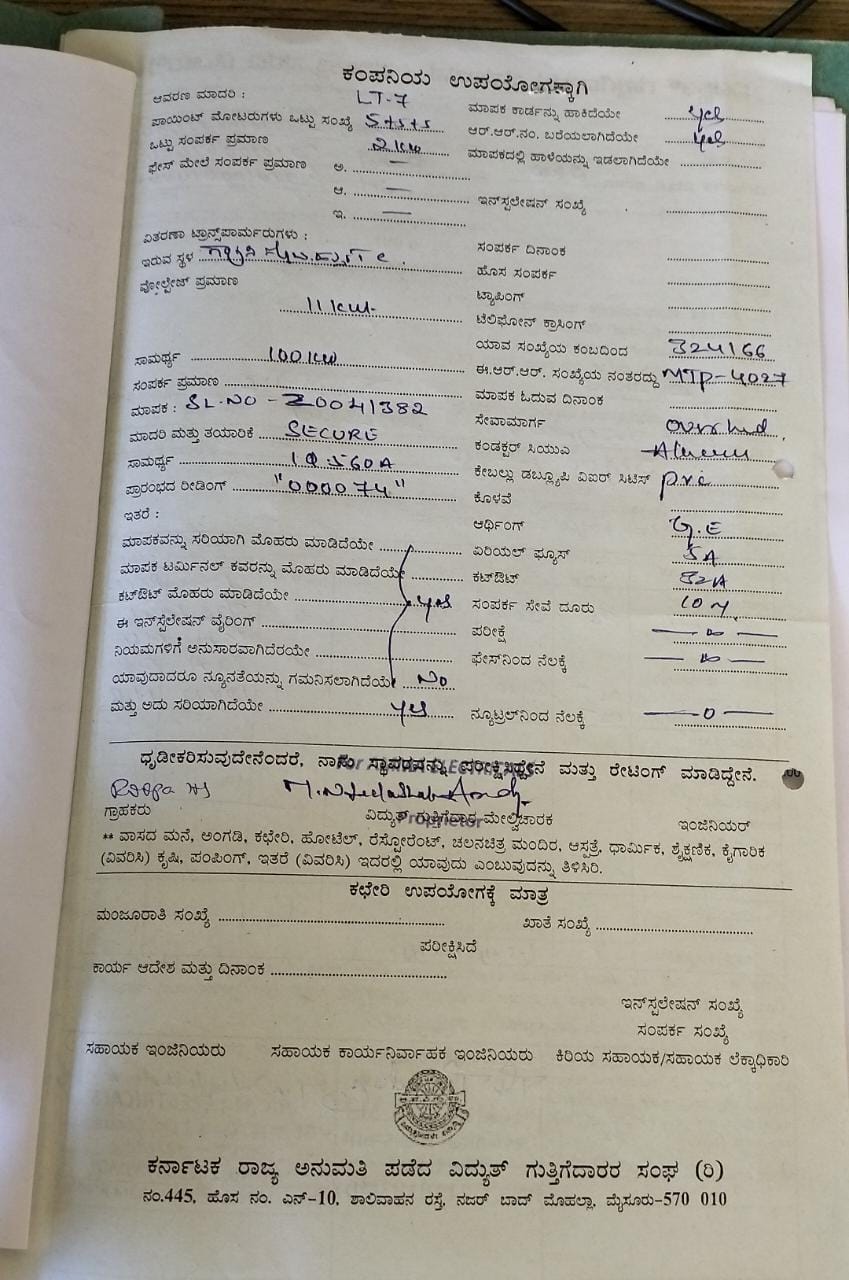 ಕಂಪನಿಯ ಉಪಯೋಗಕ್ಕಾಗಿ
ಆವರಣ ಮಾದರಿ : LT-7
ಪಾಯಿಂಟ್ ಮೋಟರುಗಳು ಒಟ್ಟು ಸಂಖ್ಯೆ 5+5+5
ಒಟ್ಟು ಸಂಪರ್ಕ ಪ್ರಮಾಣ 2 KW
ಫೇಸ್ ಮೇಲೆ ಸಂಪರ್ಕ ಪ್ರಮಾಣ ಅ. —
ಆ. —
ಇ. —
ವಿತರಣಾ ಟ್ರಾನ್ಸ್‌ಪಾರ್ಮರುಗಳು :
ಇರುವ ಸ್ಥಳ
ವೋಲ್ಟೇಜ್ ಪ್ರಮಾಣ
ಸಾಮರ್ಥ್ಯ 100 KW
ಸಂಪರ್ಕ ಪ್ರಮಾಣ
ಮಾಪಕ : SL.NO - 20041382
ಮಾದರಿ ಮತ್ತು ತಯಾರಿಕೆ SECURE
ಸಾಮರ್ಥ್ಯ
ಪ್ರಾರಂಭದ ರೀಡಿಂಗ್ "000074"
ಇತರೆ :
ಮಾಪಕವನ್ನು ಸರಿಯಾಗಿ ಮೊಹರು ಮಾಡಿದೆಯೇ
ಮಾಪಕ ಟರ್ಮಿನಲ್ ಕವರನ್ನು ಮೊಹರು ಮಾಡಿದೆಯೇ
ಕಟ್‌ಔಟ್ ಮೊಹರು ಮಾಡಿದೆಯೇ yes
ಈ ಇನ್‌ಸ್ಟಲೇಷನ್ ವೈರಿಂಗ್
ನಿಯಮಗಳಿಗೆ ಅನುಸಾರವಾಗಿದೆರಯೇ
ಯಾವುದಾದರೂ ನ್ಯೂನತೆಯನ್ನು ಗಮನಿಸಲಾಗಿದೆಯೇ No
ಮತ್ತು ಅದು ಸರಿಯಾಗಿದೆಯೇ yes
ಮಾಪಕ ಕಾರ್ಡನ್ನು ಹಾಕಿದೆಯೇ yes
ಆರ್.ಆರ್.ನಂ. ಬರೆಯಲಾಗಿದೆಯೇ yes
ಮಾಪಕದಲ್ಲಿ ಹಾಳೆಯನ್ನು ಇಡಲಾಗಿದೆಯೇ
ಇನ್‌ಸ್ಟಲೇಷನ್ ಸಂಖ್ಯೆ
ಸಂಪರ್ಕ ದಿನಾಂಕ
ಹೊಸ ಸಂಪರ್ಕ
ಟ್ಯಾಪಿಂಗ್
ಟೆಲಿಫೋನ್ ಕ್ರಾಸಿಂಗ್
ಯಾವ ಸಂಖ್ಯೆಯ ಕಂಬದಿಂದ 324166
ಈ.ಆರ್.ಆರ್. ಸಂಖ್ಯೆಯ ನಂತರದ್ದು MTP-4027
ಮಾಪಕ ಓದುವ ದಿನಾಂಕ
ಸೇವಾಮಾರ್ಗ
ಕಂಡಕ್ಟರ್ ಸಿಯುಎ
ಕೇಬಲ್ಲು ಡಬ್ಲ್ಯೂಪಿ ವಿಐರ್ ಸಿಟಿಸ್ pvc
ಕೊಳವೆ
ಆರ್ಥಿಂಗ್ G.E
ಏರಿಯಲ್ ಫ್ಯೂಸ್ 5A
ಕಟ್‌ಔಟ್ 32A
ಸಂಪರ್ಕ ಸೇವೆ ದೂರು
ಪರೀಕ್ಷೆ
ಫೇಸ್‌ನಿಂದ ನೆಲಕ್ಕೆ
ನ್ಯೂಟ್ರಲ್‌ನಿಂದ ನೆಲಕ್ಕೆ —0—
ಧೃಡೀಕರಿಸುವುದೇನೆಂದರೆ, ನಾನು ಸ್ಥಾವರವನ್ನು ಪರೀಕ್ಷಿಸಿದ್ದೇನೆ ಮತ್ತು ರೇಟಿಂಗ್ ಮಾಡಿದ್ದೇನೆ.
For
Proprietor
ಗ್ರಾಹಕರು ವಿದ್ಯುತ್ ಗುತ್ತಿಗೆದಾರ ಮೇಲ್ವಿಚಾರಕ ಇಂಜಿನಿಯರ್
** ವಾಸದ ಮನೆ, ಅಂಗಡಿ, ಕಛೇರಿ, ಹೋಟೆಲ್, ರೆಸ್ಟೋರೆಂಟ್, ಚಲನಚಿತ್ರ ಮಂದಿರ, ಆಸ್ಪತ್ರೆ, ಧಾರ್ಮಿಕ, ಶೈಕ್ಷಣಿಕ, ಕೈಗಾರಿಕ
(ವಿವರಿಸಿ) ಕೃಷಿ, ಪಂಪಿಂಗ್, ಇತರೆ (ವಿವರಿಸಿ) ಇದರಲ್ಲಿ ಯಾವುದು ಎಂಬುವುದನ್ನು ತಿಳಿಸಿರಿ.
ಕಛೇರಿ ಉಪಯೋಗಕ್ಕೆ ಮಾತ್ರ
ಮಂಜೂರಾತಿ ಸಂಖ್ಯೆ ಖಾತೆ ಸಂಖ್ಯೆ
ಪರೀಕ್ಷಿಸಿದೆ
ಕಾರ್ಯ ಆದೇಶ ಮತ್ತು ದಿನಾಂಕ
ಇನ್‌ಸ್ಟಲೇಷನ್ ಸಂಖ್ಯೆ
ಸಂಪರ್ಕ ಸಂಖ್ಯೆ
ಸಹಾಯಕ ಇಂಜಿನಿಯರು ಸಹಾಯಕ ಕಾರ್ಯನಿರ್ವಾಹಕ ಇಂಜಿನಿಯರು ಕಿರಿಯ ಸಹಾಯಕ/ಸಹಾಯಕ ಲೆಕ್ಕಾಧಿಕಾರಿ
ಕರ್ನಾಟಕ ರಾಜ್ಯ ಅನುಮತಿ ಪಡೆದ ವಿದ್ಯುತ್ ಗುತ್ತಿಗೆದಾರರ ಸಂಘ (ರಿ)
ನಂ.445, ಹೊಸ ನಂ. ಎನ್-10, ಶಾಲಿವಾಹನ ರಸ್ತೆ, ನಜರ್ ಬಾದ್ ಮೊಹಲ್ಲಾ, ಮೈಸೂರು-570 010